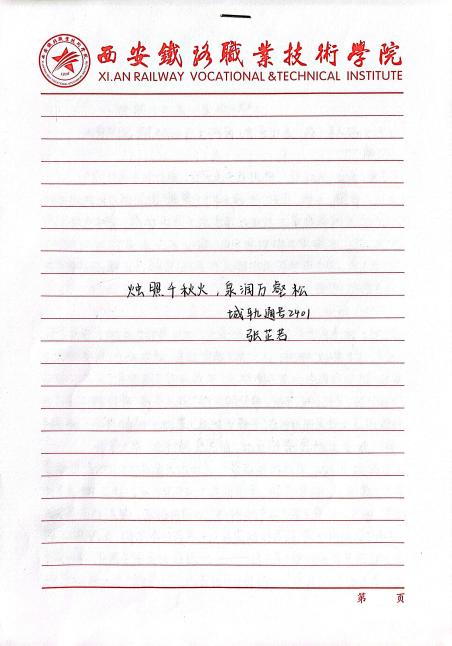 西安鐵路職業技術學院
XI.AN RAILWAY VOCATIONAL &TECHNICAL INSTITUTE
烛照千秋火,泉润万壑松
城轨通号2401
张芷若
第 页